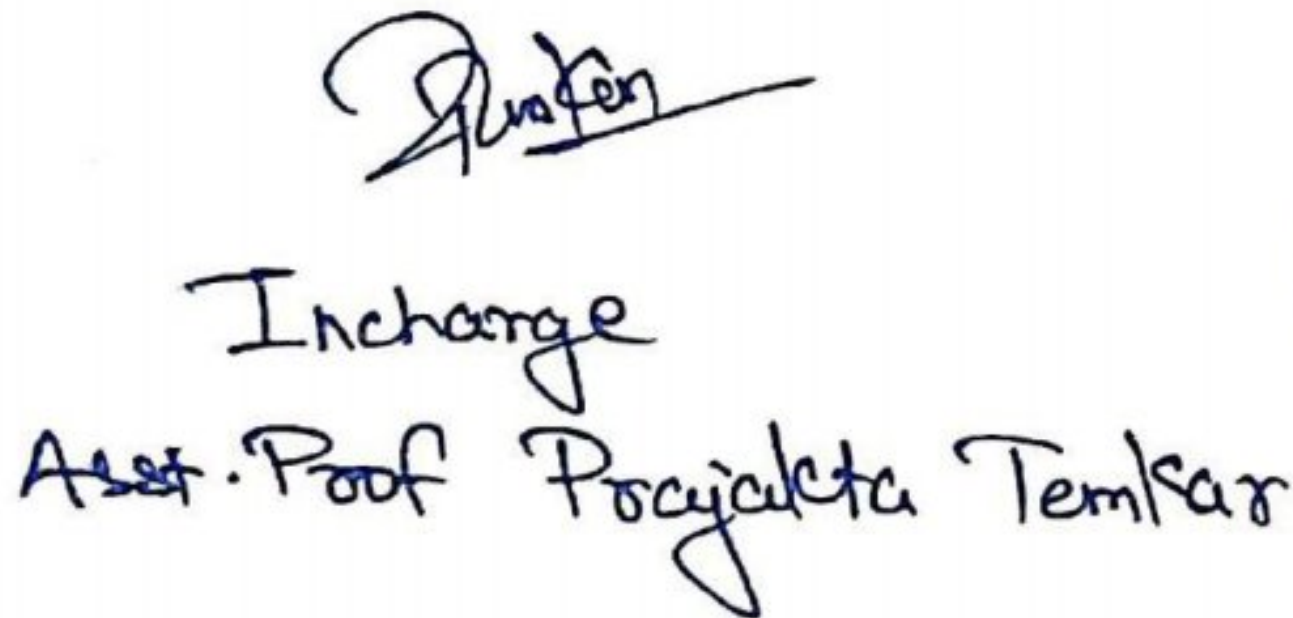 Incharge
Asst. Prof Prajakta Temkar